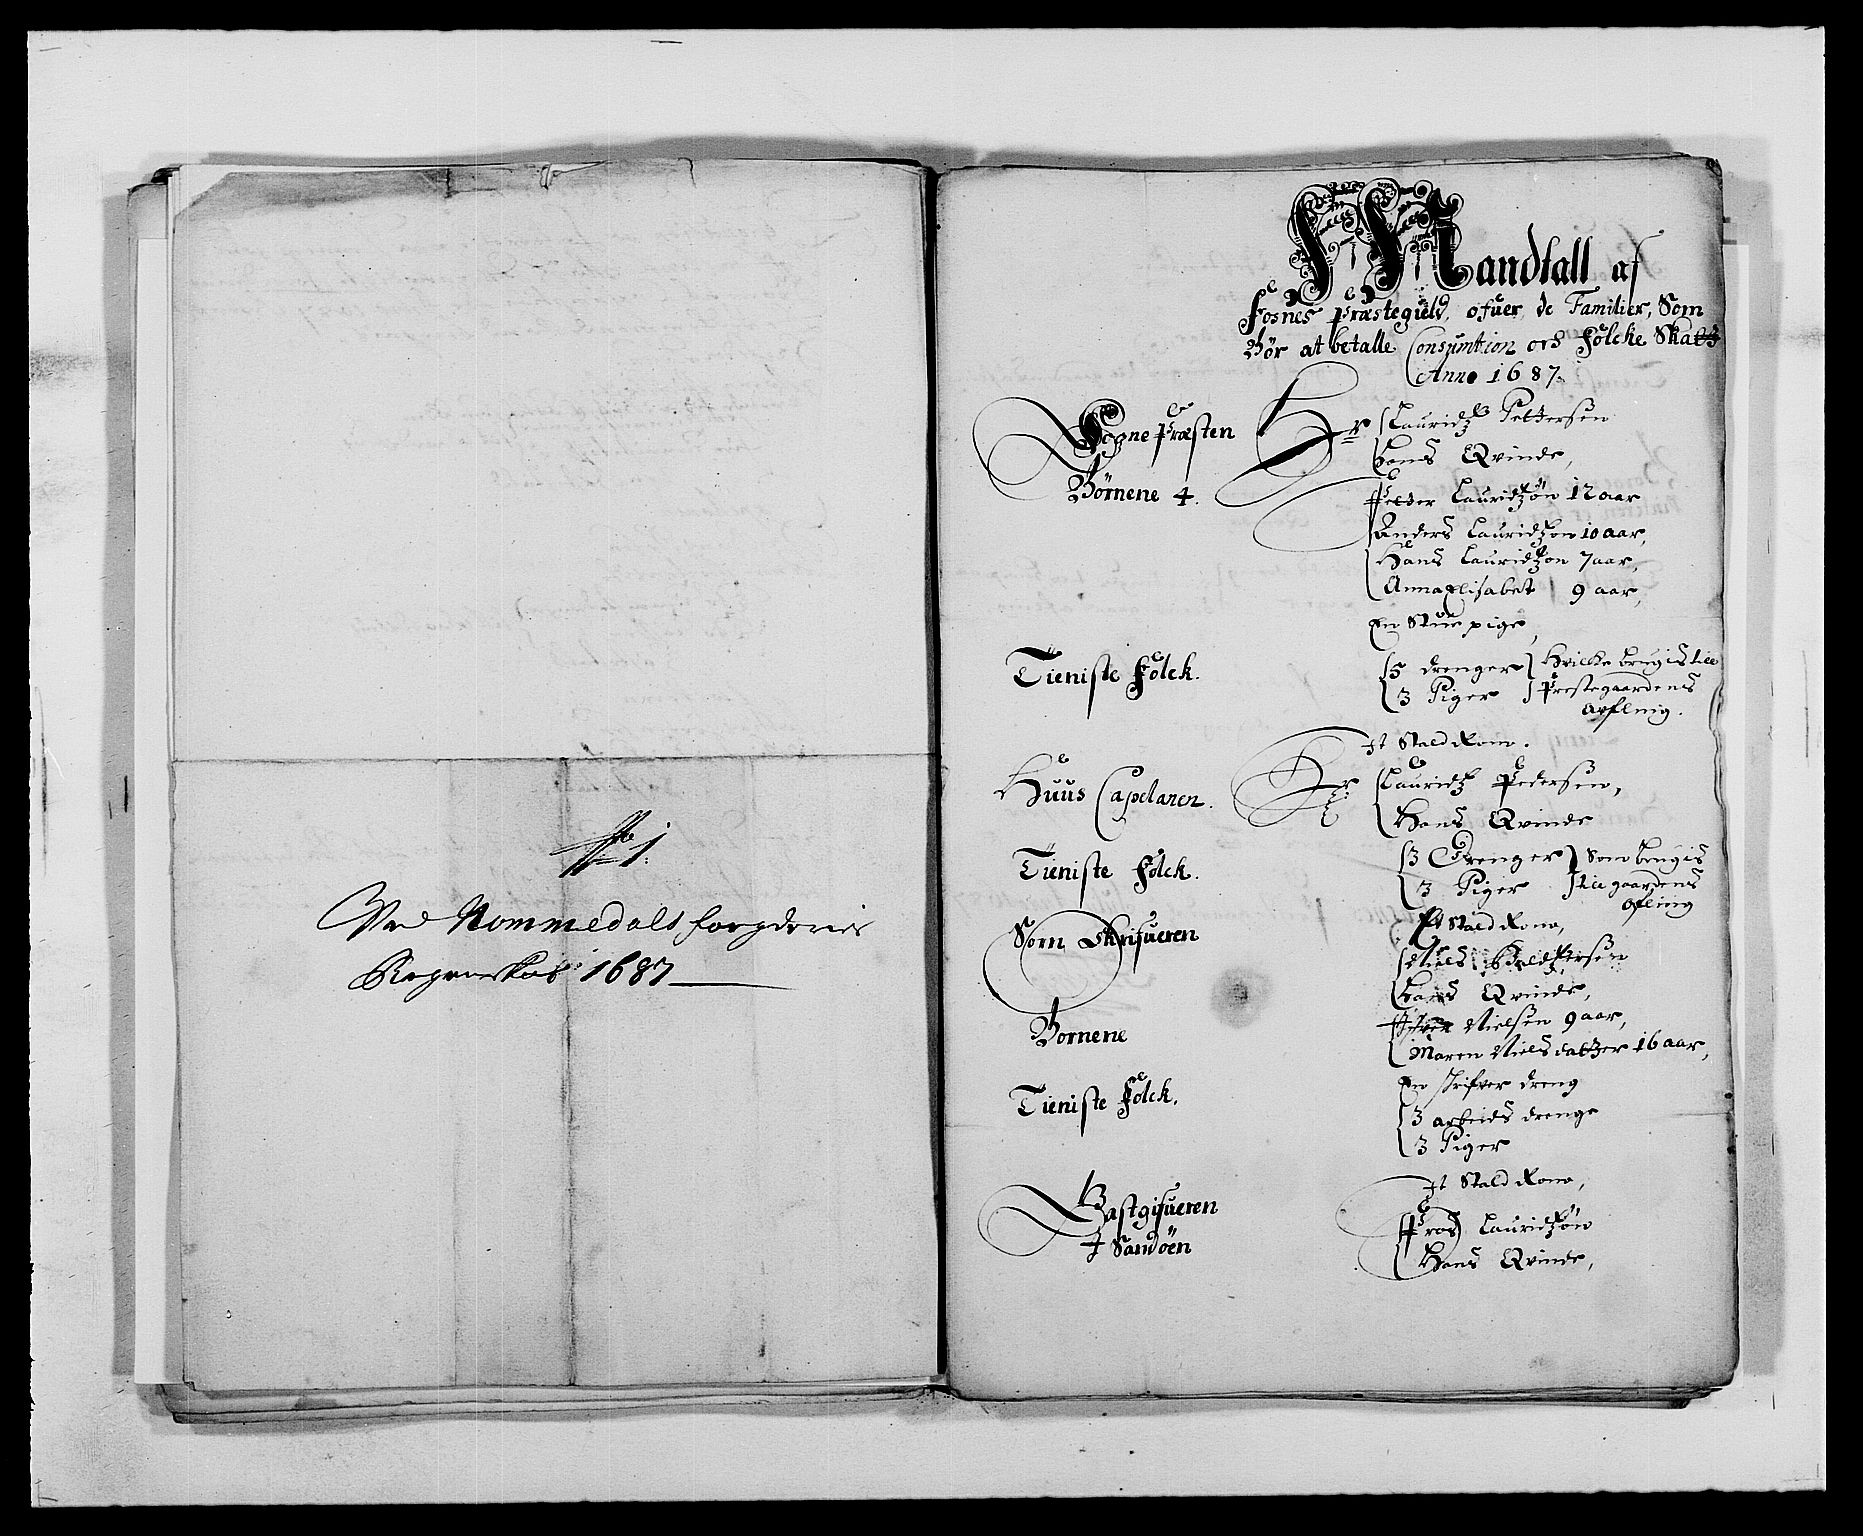 No 1.
Ved Nommedals fougderies
Regenskab 1687
Mandtall af
Fosnes Præstegield, ofuer de Familier, Som
Bør at betalle Consumtion och Folcke Skatt
Anno 1687.
Sogne Præsten Hr Lauridtz Pettersen
Hans Qvinde,
Børnene 4. Petter Lauridtzøn 12 aar
Anders Lauridtzøn 10 aar,
Hans Lauridtzøn 7 aar,
Anna Elisabet 9 aar,
En Stue pige,
Tieniste Folck. 5 drenger hvilke brugis til
3 Piger Prestegaardens
Aufling.
It Stald Rom.
Huus Capelanen. Hr Lauridtz Pedersen,
Hans Qvinde
Tieniste Folck. 3 Drenger Som brugis
3 Piger til gaardens
Afling
Et Stald Rom,
Sorn Skrifueren Niels
Hans Qvinde,
Bornene Nielsen 9 aar,
Maren Niels datter 16 aar,
Tieniste Folck. En skrifver dreng
3 arbeids drenge
3 Piger
It Stald Rom,
Gastgifueren Pros Lauridtzøn
I Sandöen Hans Qvinde,